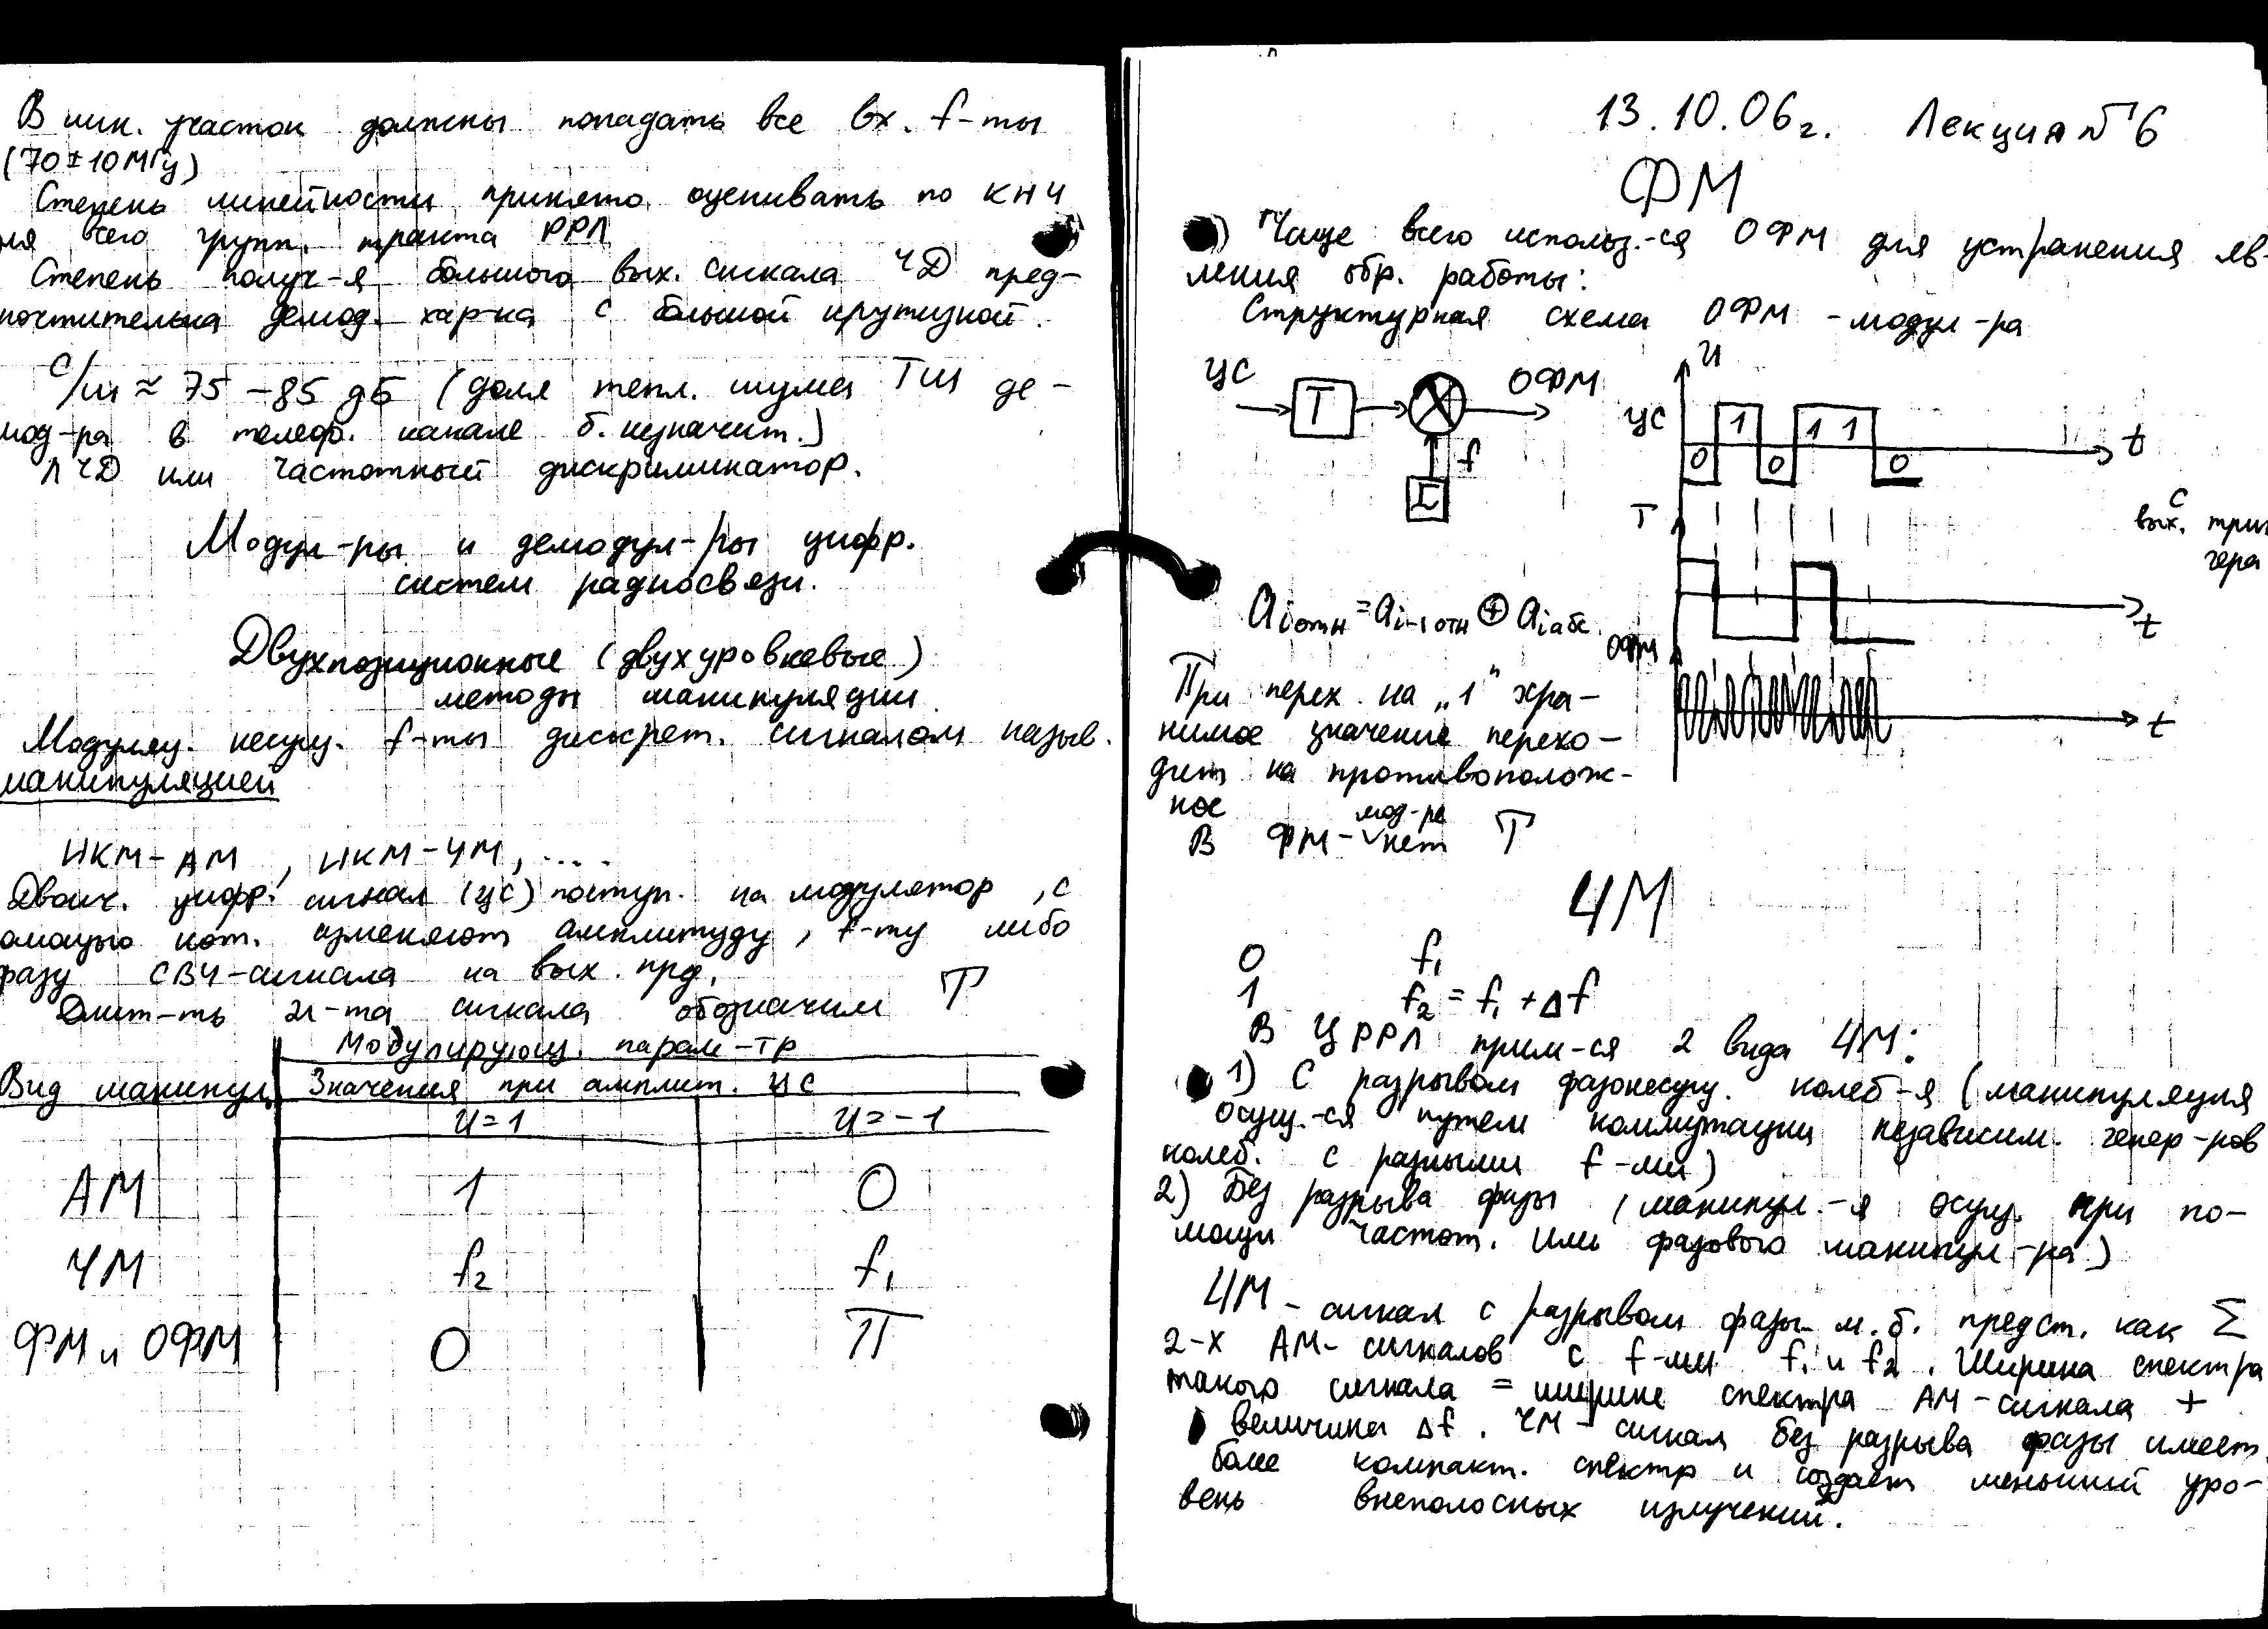 В лин. участок должны попадать все вх. f-ты
(70±10МГц)
Степень линейности принято оценивать по КНЧ
ля всего групп. тракта РРЛ
Степень получ-я большого вых. сигнала ЧД пред-
почтительна демод. хар-ка с большой крутизной.
с/ш ≈ 75 – 85 дБ (доля тепл. шума ТШ де-
мод-ра в телеф. канале б. незначит.)
ЛЧД или частотный дискриминатор.
Модул-ры и демодул-ры цифр.
систем радиосвязи.
Двухпозиционные (двухуровневые)
методы манипуляции
Модуляц. несущ. f-ты дискрет. сигналом назыв.
манипуляцией
ИКМ-АМ, ИКМ-ЧМ, ....
Двоич. цифр. сигнал (ЦС) поступ. на модулятор, с
омощью кот. изменяют амплитуду, f-ту либо
фазу СВЧ-сигнала на вых. прд.
Длит-ть эл-та сигнала обозначим T
Модулирующ. парам-тр
Вид манипул. Значения при амплит. ЦС
U=1 U=-1
АМ 1 0
ЧМ f₂ f₁
ФМ и ОФМ 0 П
13.10.06г. Лекция №6
ФМ
) Чаще всего использ.-ся ОФМ для устранения яв-
ления обр. работы:
Структурная схема ОФМ-модул-ра
ЦС T ОФМ
f
Г
U
ЦС 0 1 0 1 1 0 t
T
с вых. триг
гера
t
ОФМ
t
ai отн = ai-1 отн ⊕ ai абс.
При перех. на „1" хра-
нимое значение перехо-
дит на противополож-
ное
мод-ре
В ФМ-∨нет T
ЧМ
0 f₁
1 f₂ = f₁ + Δf
В ЦРРЛ прим-ся 2 вида ЧМ:
1) С разрывом фазонесущ. колеб-я (манипуляция
осущ.-ся путем коммутации независим. генер-ров
колеб. с разными f-ми)
2) Без разрыва фазы (манипул.-я осущ. при по-
мощи частот. или фазового манипул-ра)
ЧМ-сигнал с разрывом фазы м.б. предст. как Σ
2-х АМ-сигналов с f-ми f₁ и f₂. Ширина спектра
такого сигнала = ширине спектра АМ-сигнала +
величина Δf. ЧМ-сигнал без разрыва фазы имеет
более компакт. спектр и создает меньший уро-
вень внеполосных излучений.